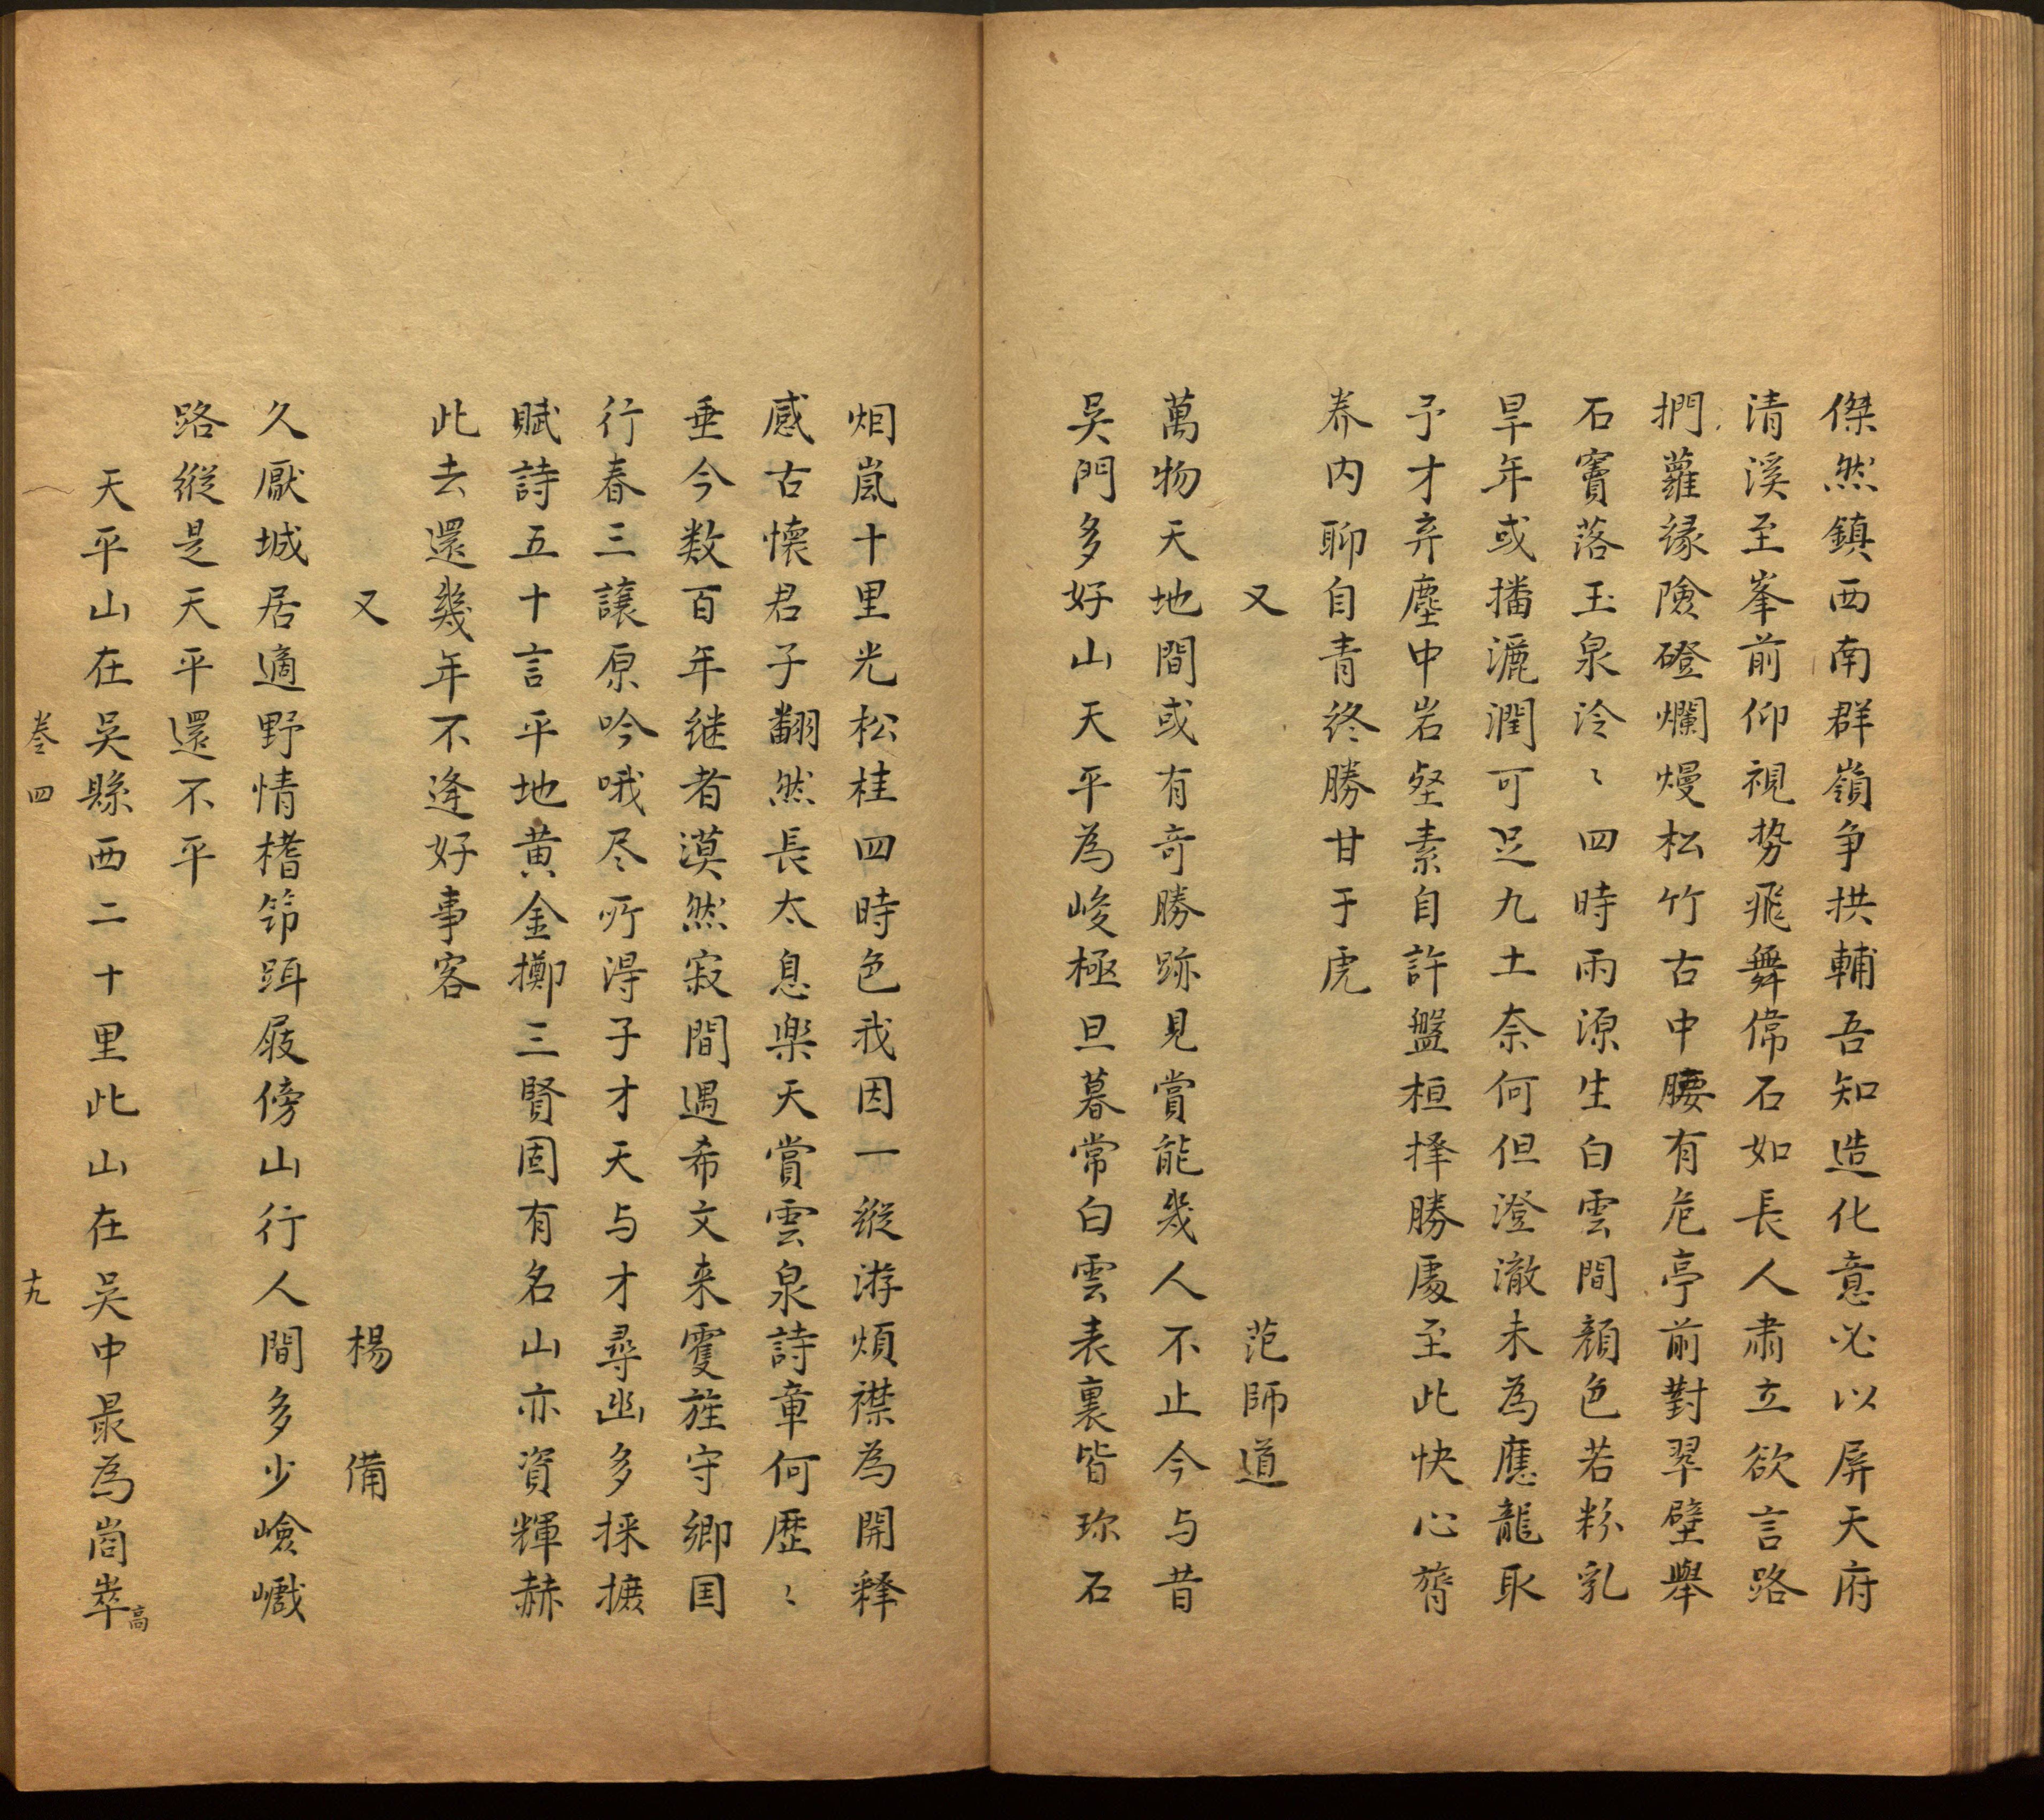 傑然鎮西南群嶺争拱輔吾知造化意必以屏天府
清溪至峯前仰視势飛舞偉石如長人肅立欲言路
捫蘿緣險磴爛熳松竹古中腰有危亭前對翠壁舉
石竇落玉泉泠〻四時雨源生白雲間顏色若粉乳
旱年或播灑潤可足九土奈何但澄澈未為應龍取
予才弃塵中岩壑素自許盤桓擇勝處至此快心膂
養内聊自青终勝甘于虎
又 范師道
萬物天地間或有奇勝跡見賞能幾人不止今与昔
吳門多好山天平為峻極旦暮常白雲表裏皆珎石
烟嵐十里光松桂四時色我因一縱游煩襟為開釋
感古懷君子翻然長太息楽天賞雲泉詩章何歷〻
垂今数百年继者漠然寂間遇希文来䨥旌守鄉囯
行春三讓原吟哦尽所得子才天与才尋幽多採摭
賦詩五十言平地黄金擲三賢固有名山亦資輝赫
此去還幾年不逢好事客
又 楊備
久厭城居適野情楮筇跙屐傍山行人間多少嶮巇
路縱是天平還不平
天平山在吳縣西二十里此山在吳中最為崗崒高
卷四 十九